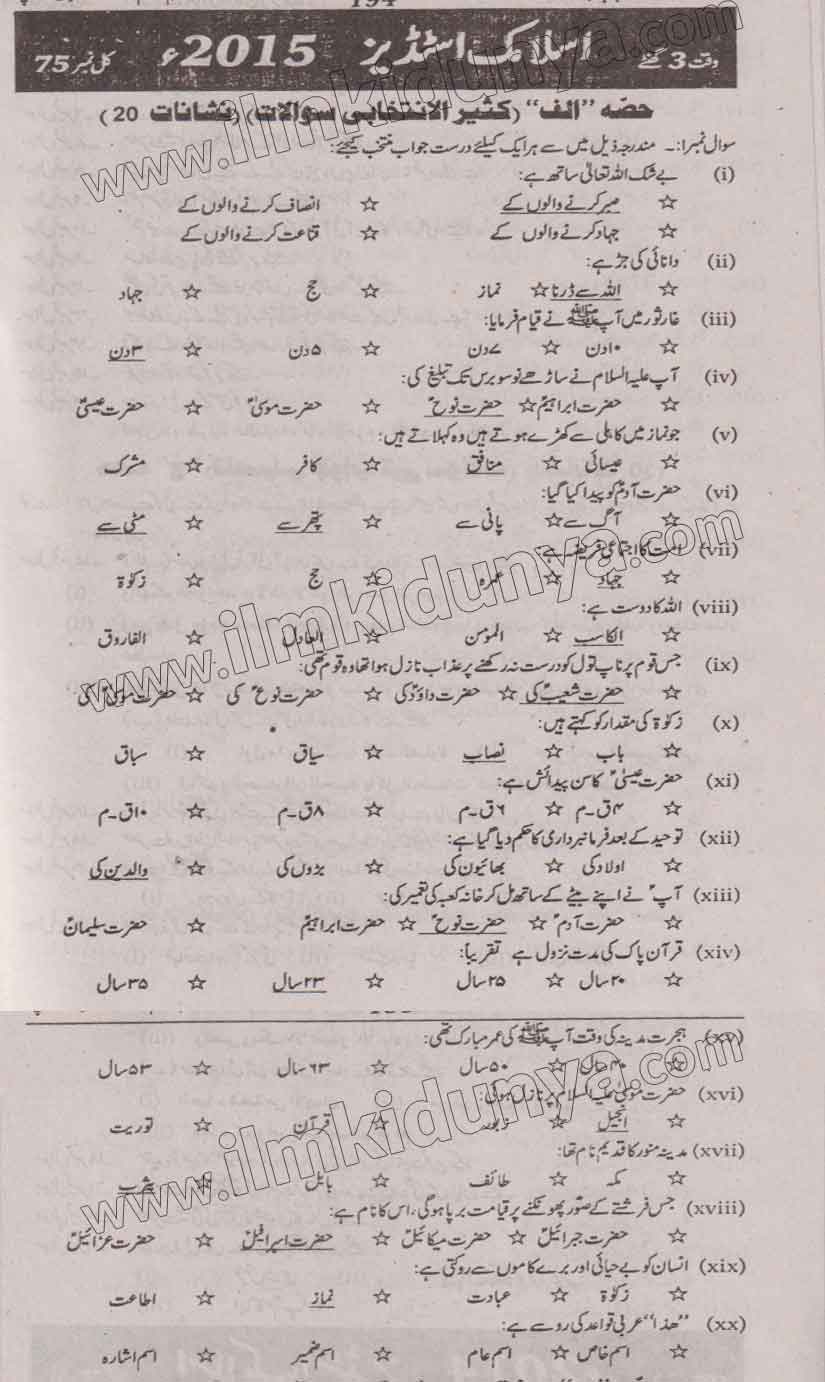 194
وقت 3 گھنٹے اسلامک اسٹڈیز 2015ء کل نمبر 75
حصّہ "الف" (کثیر الانتخابی سوالات) (نشانات 20)
سوال نمبرا:۔ مندرجہ ذیل میں سے ہر ایک کیلئے درست جواب منتخب کیجئے:
(i) بے شک اللہ تعالیٰ ساتھ ہے:
☆ صبر کرنے والوں کے ☆ انصاف کرنے والوں کے
☆ جہاد کرنے والوں کے ☆ قناعت کرنے والوں کے
(ii) دانائی کی جڑ ہے:
☆ اللہ سے ڈرنا ☆ نماز ☆ حج ☆ جہاد
(iii) غار ثور میں آپ ﷺ نے قیام فرمایا:
☆ ۱۰دن ☆ ۷دن ☆ ۵دن ☆ ۳دن
(iv) آپ علیہ السلام نے ساڑھے نو سو برس تک تبلیغ کی:
☆ حضرت ابراہیمؑ ☆ حضرت نوحؑ ☆ حضرت موسیٰؑ ☆ حضرت عیسیٰؑ
(v) جو نماز میں کاہلی سے کھڑے ہوتے ہیں وہ کہلاتے ہیں:
☆ عیسائی ☆ منافق ☆ کافر ☆ مشرک
(vi) حضرت آدمؑ کو پیدا کیا گیا:
☆ آگ سے ☆ پانی سے ☆ پتھر سے ☆ مٹی سے
(vii) امت کا اجتماعی فریضہ ہے:
☆ جہاد ☆ عمرہ ☆ حج ☆ زکوٰۃ
(viii) اللہ کا دوست ہے:
☆ الکاسب ☆ المؤمن ☆ العادل ☆ الفاروق
(ix) جس قوم پر ناپ تول کو درست نہ رکھنے پر عذاب نازل ہوا تھا وہ قوم تھی:
☆ حضرت شعیبؑ کی ☆ حضرت داؤدؑ کی ☆ حضرت نوحؑ کی ☆ حضرت موسیٰؑ کی
(x) زکوٰۃ کی مقدار کو کہتے ہیں:
☆ باب ☆ نصاب ☆ سیاق ☆ سباق
(xi) حضرت عیسیٰؑ کا سن پیدائش ہے:
☆ ۴ق۔م ☆ ۶ق۔م ☆ ۸ق۔م ☆ ۱۰ق۔م
(xii) توحید کے بعد فرمانبرداری کا حکم دیا گیا ہے:
☆ اولاد کی ☆ بھائیوں کی ☆ بڑوں کی ☆ والدین کی
(xiii) آپؑ نے اپنے بیٹے کے ساتھ مل کر خانہ کعبہ کی تعمیر کی:
☆ حضرت آدمؑ ☆ حضرت نوحؑ ☆ حضرت ابراہیمؑ ☆ حضرت سلیمانؑ
(xiv) قرآن پاک کی مدت نزول ہے تقریباً:
☆ ۲۰سال ☆ ۲۵سال ☆ ۲۳سال ☆ ۳۵سال
(xv) ہجرت مدینہ کی وقت آپ ﷺ کی عمر مبارک تھی:
☆ ۴۰سال ☆ ۵۰سال ☆ ۶۳سال ☆ ۵۳سال
(xvi) حضرت موسیٰ علیہ السلام پر نازل ہوئی:
☆ انجیل ☆ زبور ☆ قرآن ☆ توریت
(xvii) مدینہ منور کا قدیم نام تھا:
☆ مکہ ☆ طائف ☆ بابل ☆ یثرب
(xviii) جس فرشتے کے صور پھونکنے پر قیامت برپا ہوگی، اس کا نام ہے:
☆ حضرت جبرائیلؑ ☆ حضرت میکائیلؑ ☆ حضرت اسرافیلؑ ☆ حضرت عزائیلؑ
(xix) انسان کو بے حیائی اور برے کاموں سے روکتی ہے:
☆ زکوٰۃ ☆ عبادت ☆ نماز ☆ اطاعت
(xx) "ھذا" عربی قواعد کی رو سے ہے:
☆ اسم خاص ☆ اسم عام ☆ اسم ضمیر ☆ اسم اشارہ
www.ilmkidunya.com
www.ilmkidunya.com
www.ilmkidunya.com